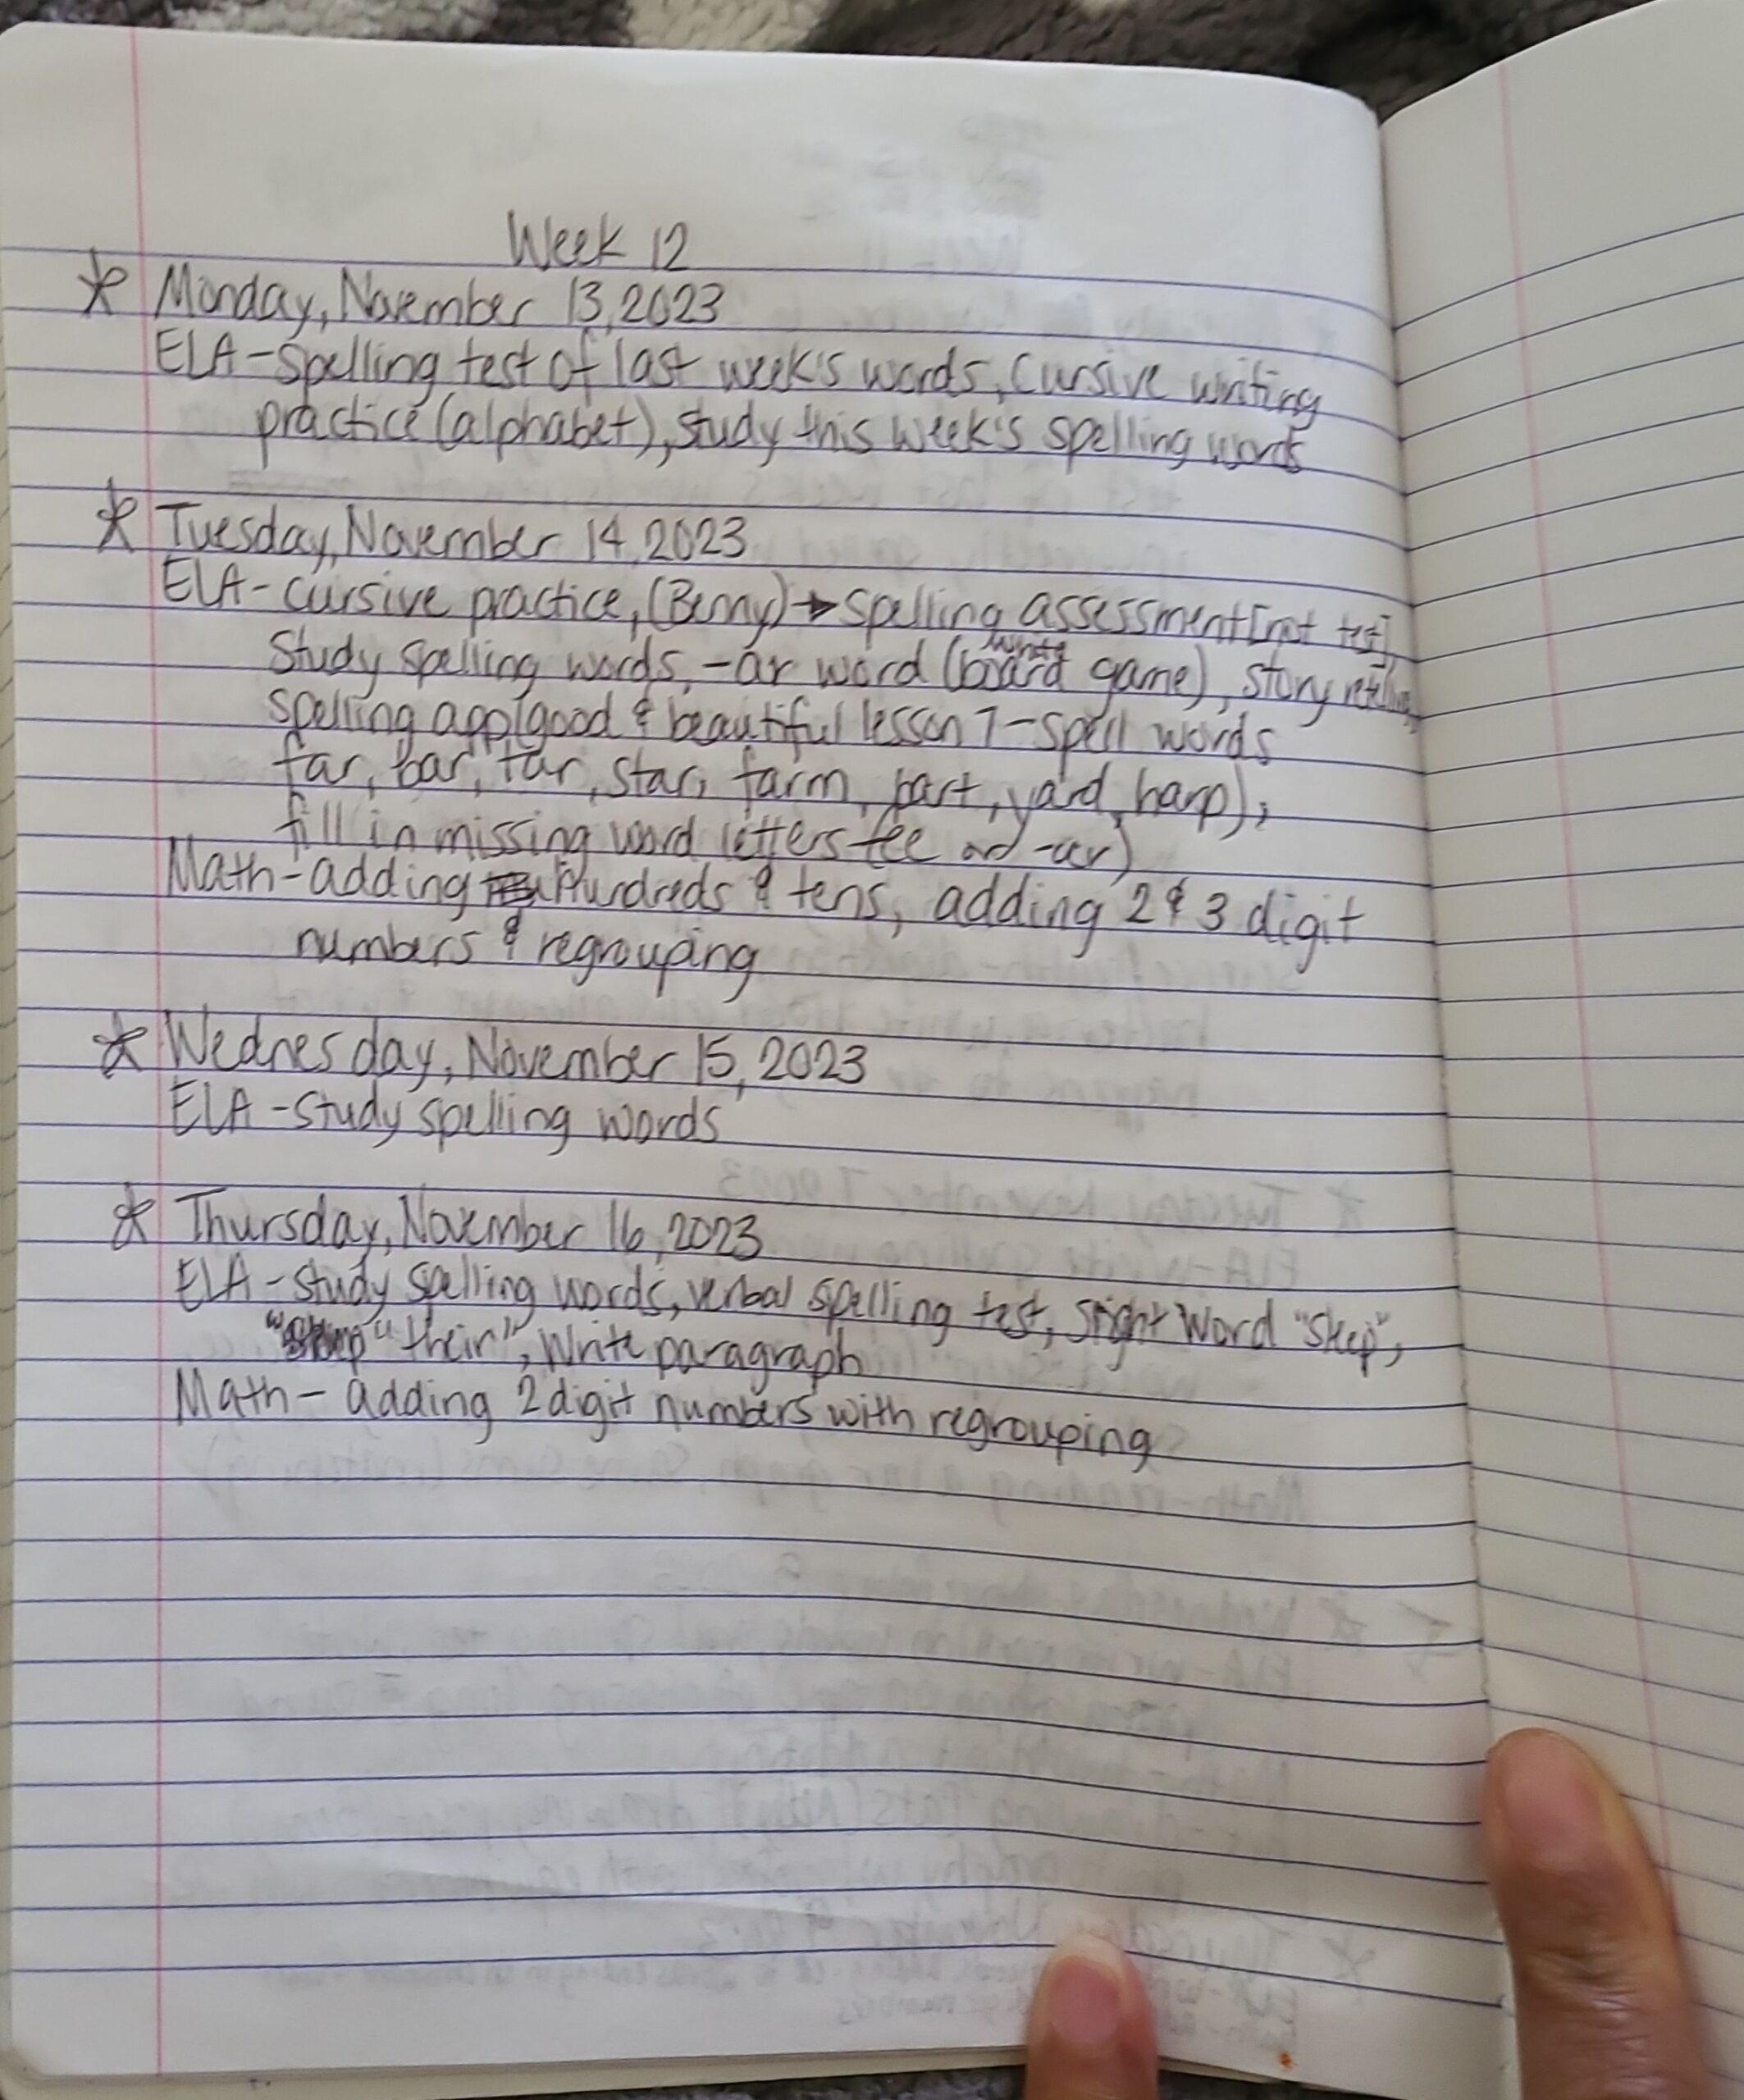 Week 12
* Monday, November 13, 2023
ELA - Spelling test of last week's words, Cursive writing
practice (alphabet), study this week's spelling words
* Tuesday, November 14, 2023
ELA - cursive practice, (Benny) → spelling assessment [not test],
Study spelling words, -ar word (white board game), story retelling,
spelling app (good & beautiful lesson 7 - spell words
far, bar, tar, star, farm, part, yard, harp),
fill in missing word letters (ee and -ar)
Math - adding hundreds & tens, adding 2 & 3 digit
numbers & regrouping
* Wednesday, November 15, 2023
ELA - study spelling words
* Thursday, November 16, 2023
ELA - study spelling words, verbal spelling test, sight word "sleep",
"their", write paragraph
Math - adding 2 digit numbers with regrouping